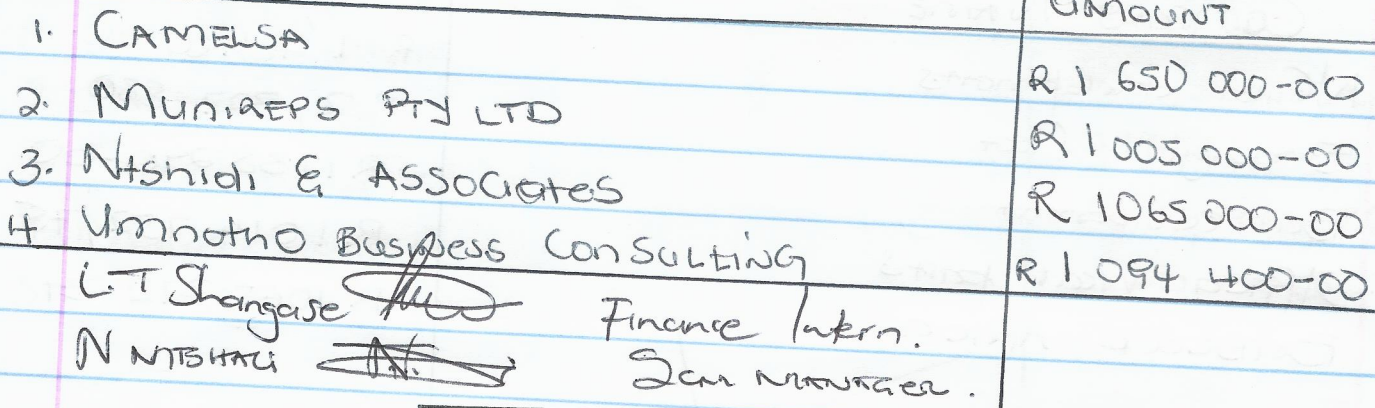 AMOUNT
1. CAMELSA R 1 650 000-00
2. MUNIREPS PTY LTD R 1 005 000-00
3. Ntshidi & ASSOCIATES R 1065 000-00
4 Umnotho Business Consulting R 1 094 400-00
L.T Shangase Finance Intern.
N NTSHALI SCM MANAGER.